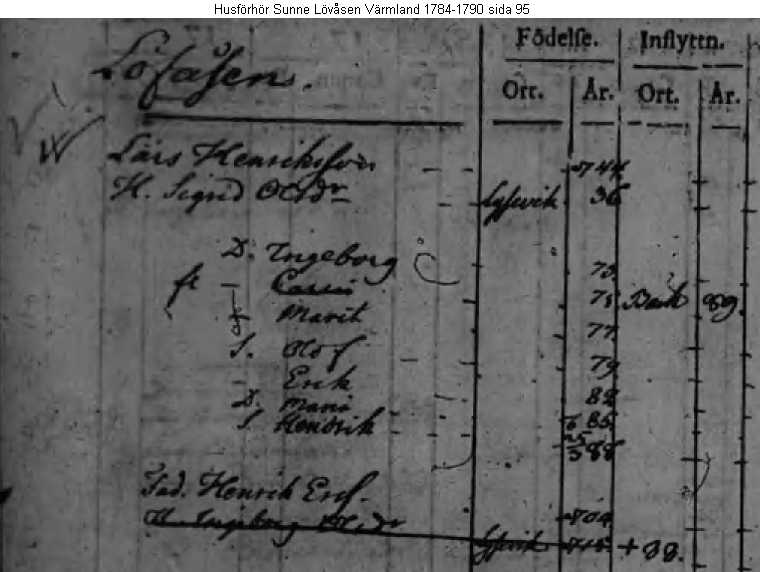 Husförhör Sunne Lövåsen Värmland 1784-1790 sida 95
Födelse. Inflyttn.
Ort. År. Ort. År.
Löfåsen.
Lars Henriksson 744
H. Sigrid Ols dr Lysvik 36
D. Ingeborg 73
- Carin 75 Back 89.
Marit 77
S. Olof 79
- Erik 82
D. Maria 6 85
S. Hendrik 25/3 88
Fad. Henrik Ers. 704
H. Ingeborg Ols dr Lysvik + 88.